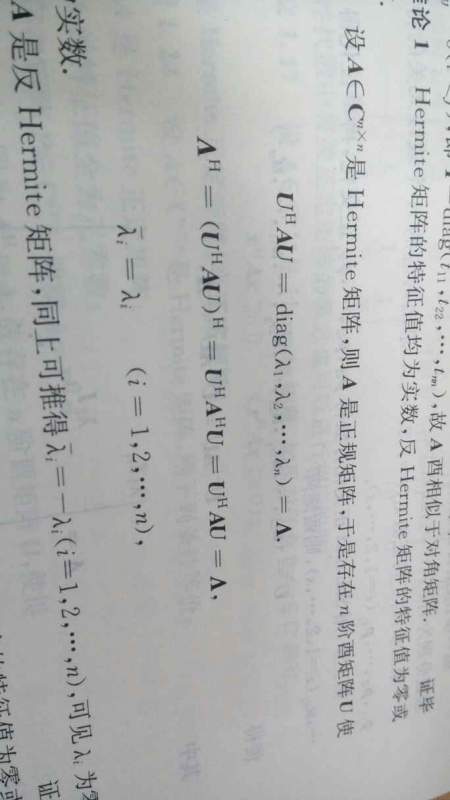 diag(t₁₁,t₂₂,…,tₙₙ),故 A 酉相似于对角矩阵. 证毕
论 1 Hermite 矩阵的特征值均为实数,反 Hermite 矩阵的特征值为零或
设 A∈Cⁿˣⁿ 是 Hermite 矩阵,则 A 是正规矩阵,于是存在 n 阶酉矩阵 U 使
UᴴAU = diag(λ₁,λ₂,…,λₙ) = Λ,
Λᴴ = (UᴴAU)ᴴ = UᴴAᴴU = UᴴAU = Λ,
λ̄ᵢ = λᵢ (i = 1,2,…,n),
实数.
A 是反 Hermite 矩阵,同上可推得 λ̄ᵢ = −λᵢ (i=1,2,…,n),可见 λᵢ 为零
证
的特征值为零或